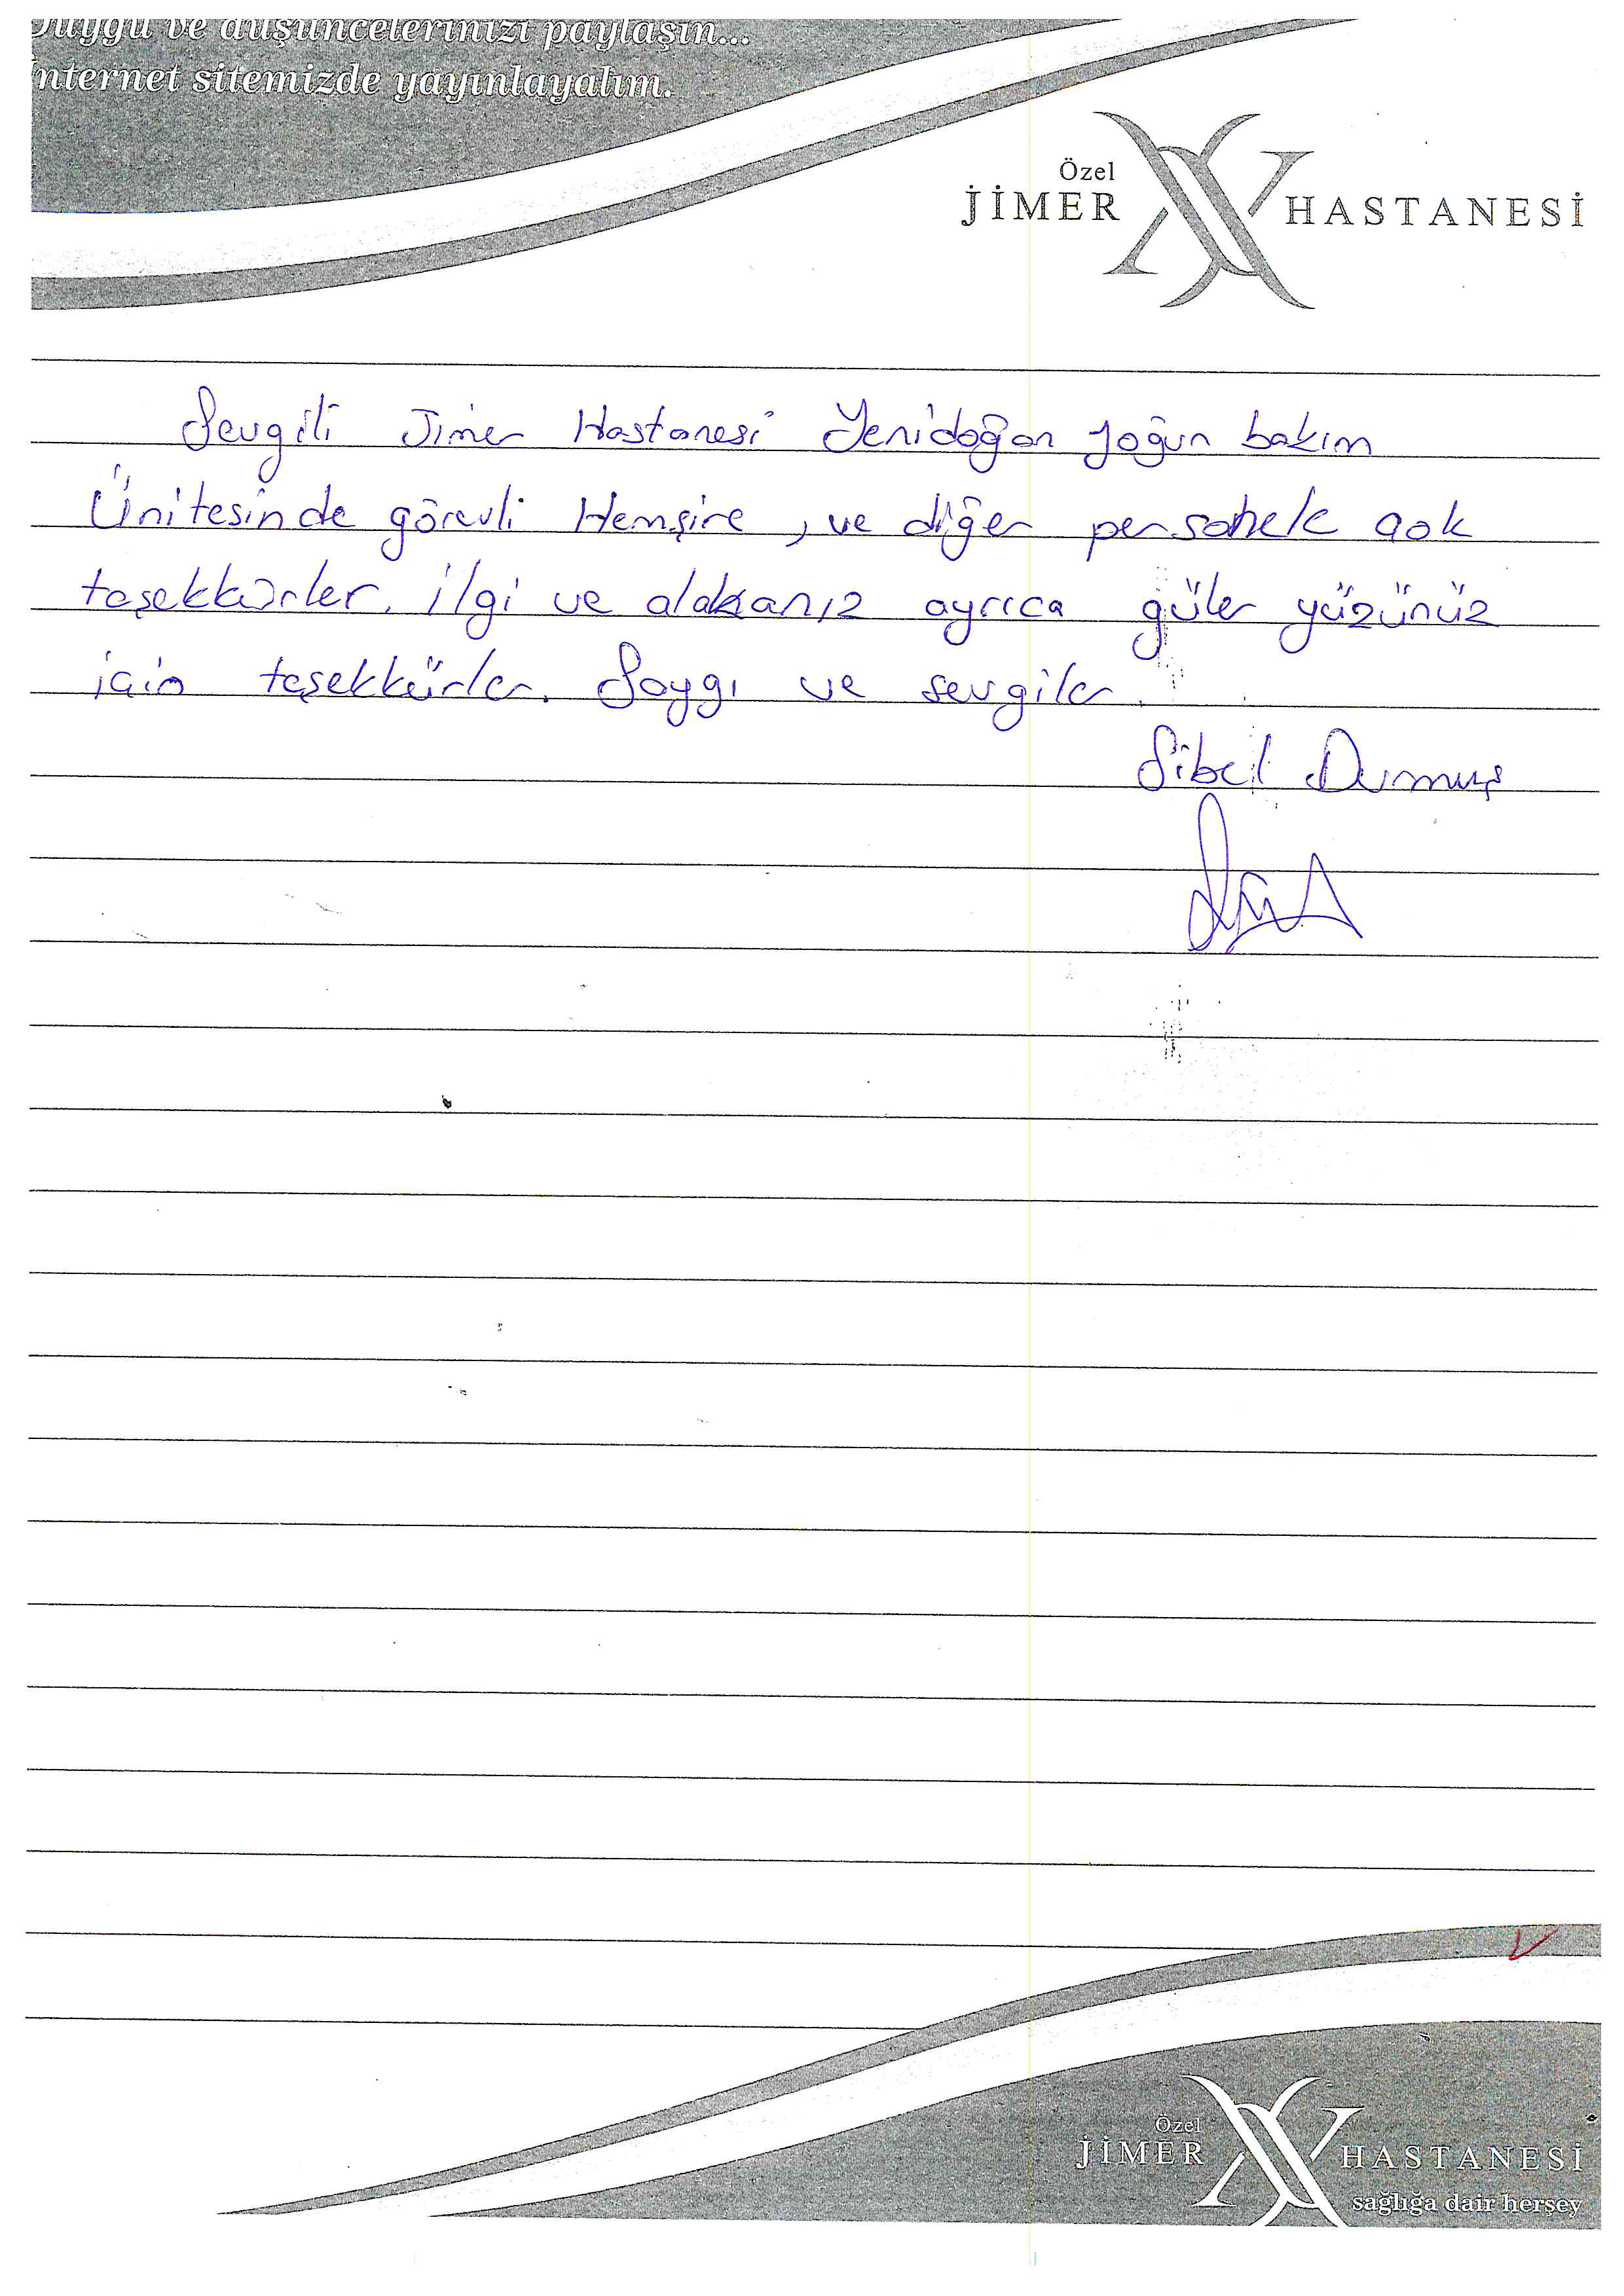 Duygu ve düşüncelerinizi paylaşın...
İnternet sitemizde yayınlayalım.
Özel
JİMER HASTANESİ
Sevgili Jimer Hastanesi Yenidoğan yoğun bakım
Ünitesinde görevli Hemşire, ve diğer personele çok
teşekkürler. ilgi ve alakanız ayrıca güler yüzünüz
için teşekkürler. Saygı ve sevgiler.
Sibel Durmuş
Özel
JİMER HASTANESİ
sağlığa dair herşey